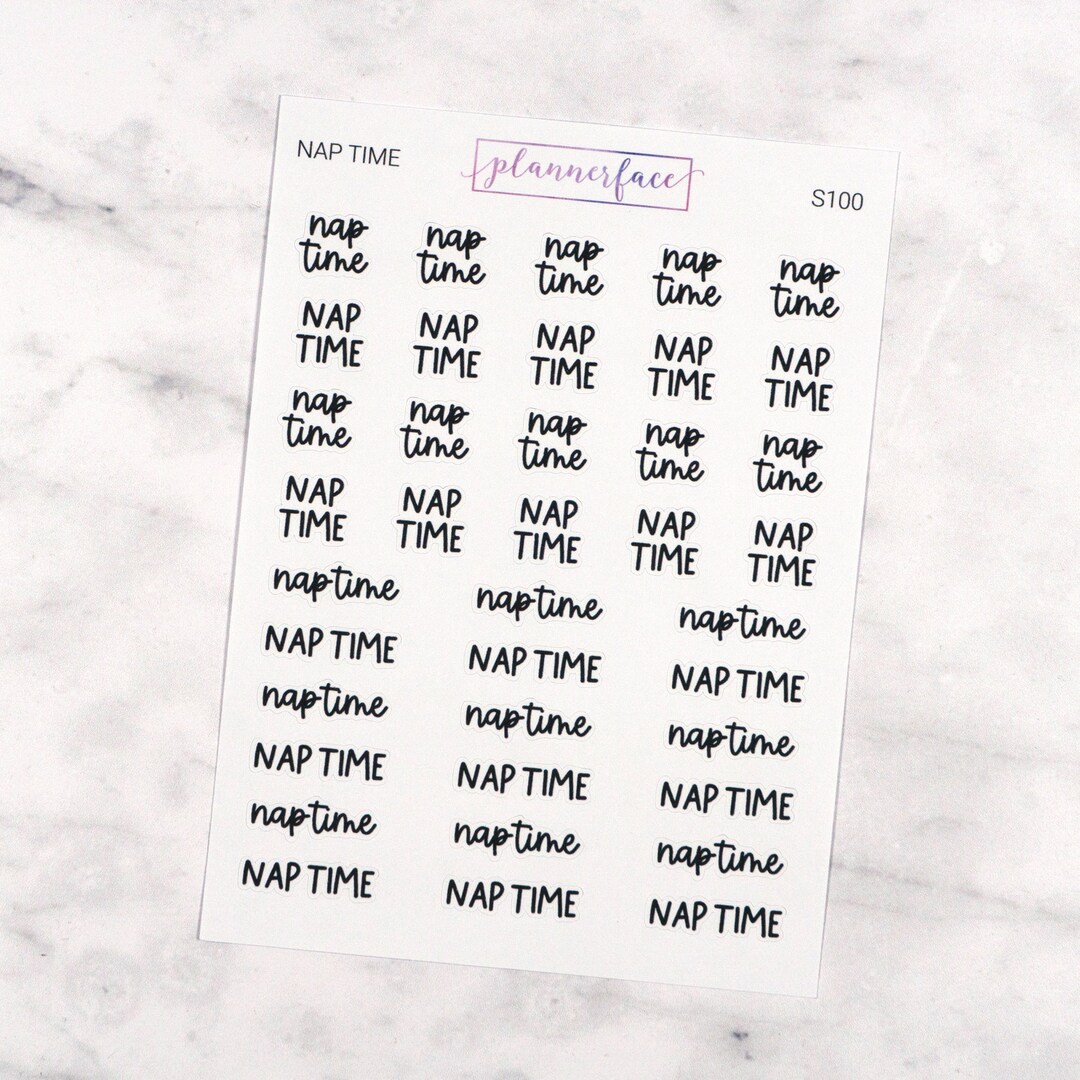 NAP TIME plannerface S100
nap nap nap nap nap
time time time time time
NAP NAP NAP NAP NAP
TIME TIME TIME TIME TIME
nap nap nap nap nap
time time time time time
NAP NAP NAP NAP NAP
TIME TIME TIME TIME TIME
nap time nap time nap time
NAP TIME NAP TIME NAP TIME
nap time nap time nap time
NAP TIME NAP TIME NAP TIME
nap time nap time nap time
NAP TIME NAP TIME NAP TIME